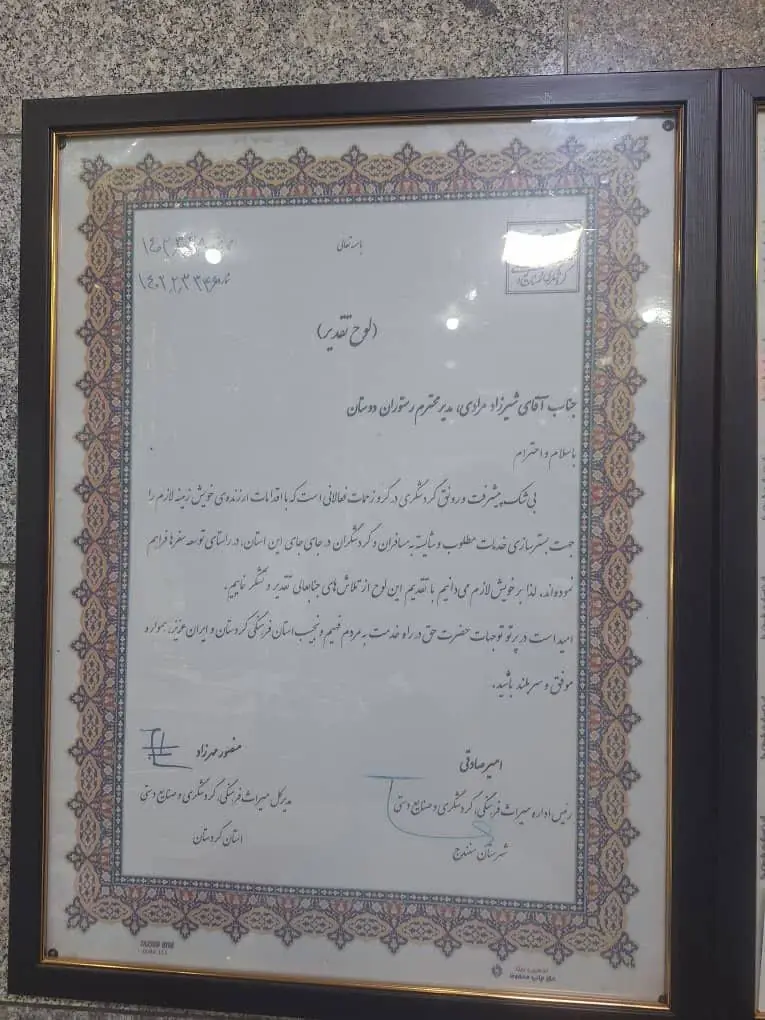 باسمه تعالی
(لوح تقدیر)
جناب آقای شیرزاد مرادی، مدیر محترم رستوران دوستان
باسلام و احترام
بی شک پیشرفت و رونق گردشگری در گرو زحمات فعالانی است که با اقدامات ارزنده‌ی خویش زمینه لازم را
جهت بسترسازی خدمات مطلوب و شایسته به مسافران و گردشگران در جای جای این استان، در راستای توسعه سفرها فراهم
نموده‌اند. لذا بر خویش لازم می‌دانیم با تقدیم این لوح از تلاش‌های جنابعالی تقدیر و تشکر نماییم.
امید است در پرتو توجهات حضرت حق در راه خدمت به مردم فهیم و نجیب استان فرهنگی کردستان و ایران عزیز، همواره
موفق و سربلند باشید.
امیر صادقی
رئیس اداره میراث فرهنگی، گردشگری و صنایع دستی
شهرستان سنندج
منصور مهرزاد
مدیرکل میراث فرهنگی، گردشگری و صنایع دستی
استان کردستان